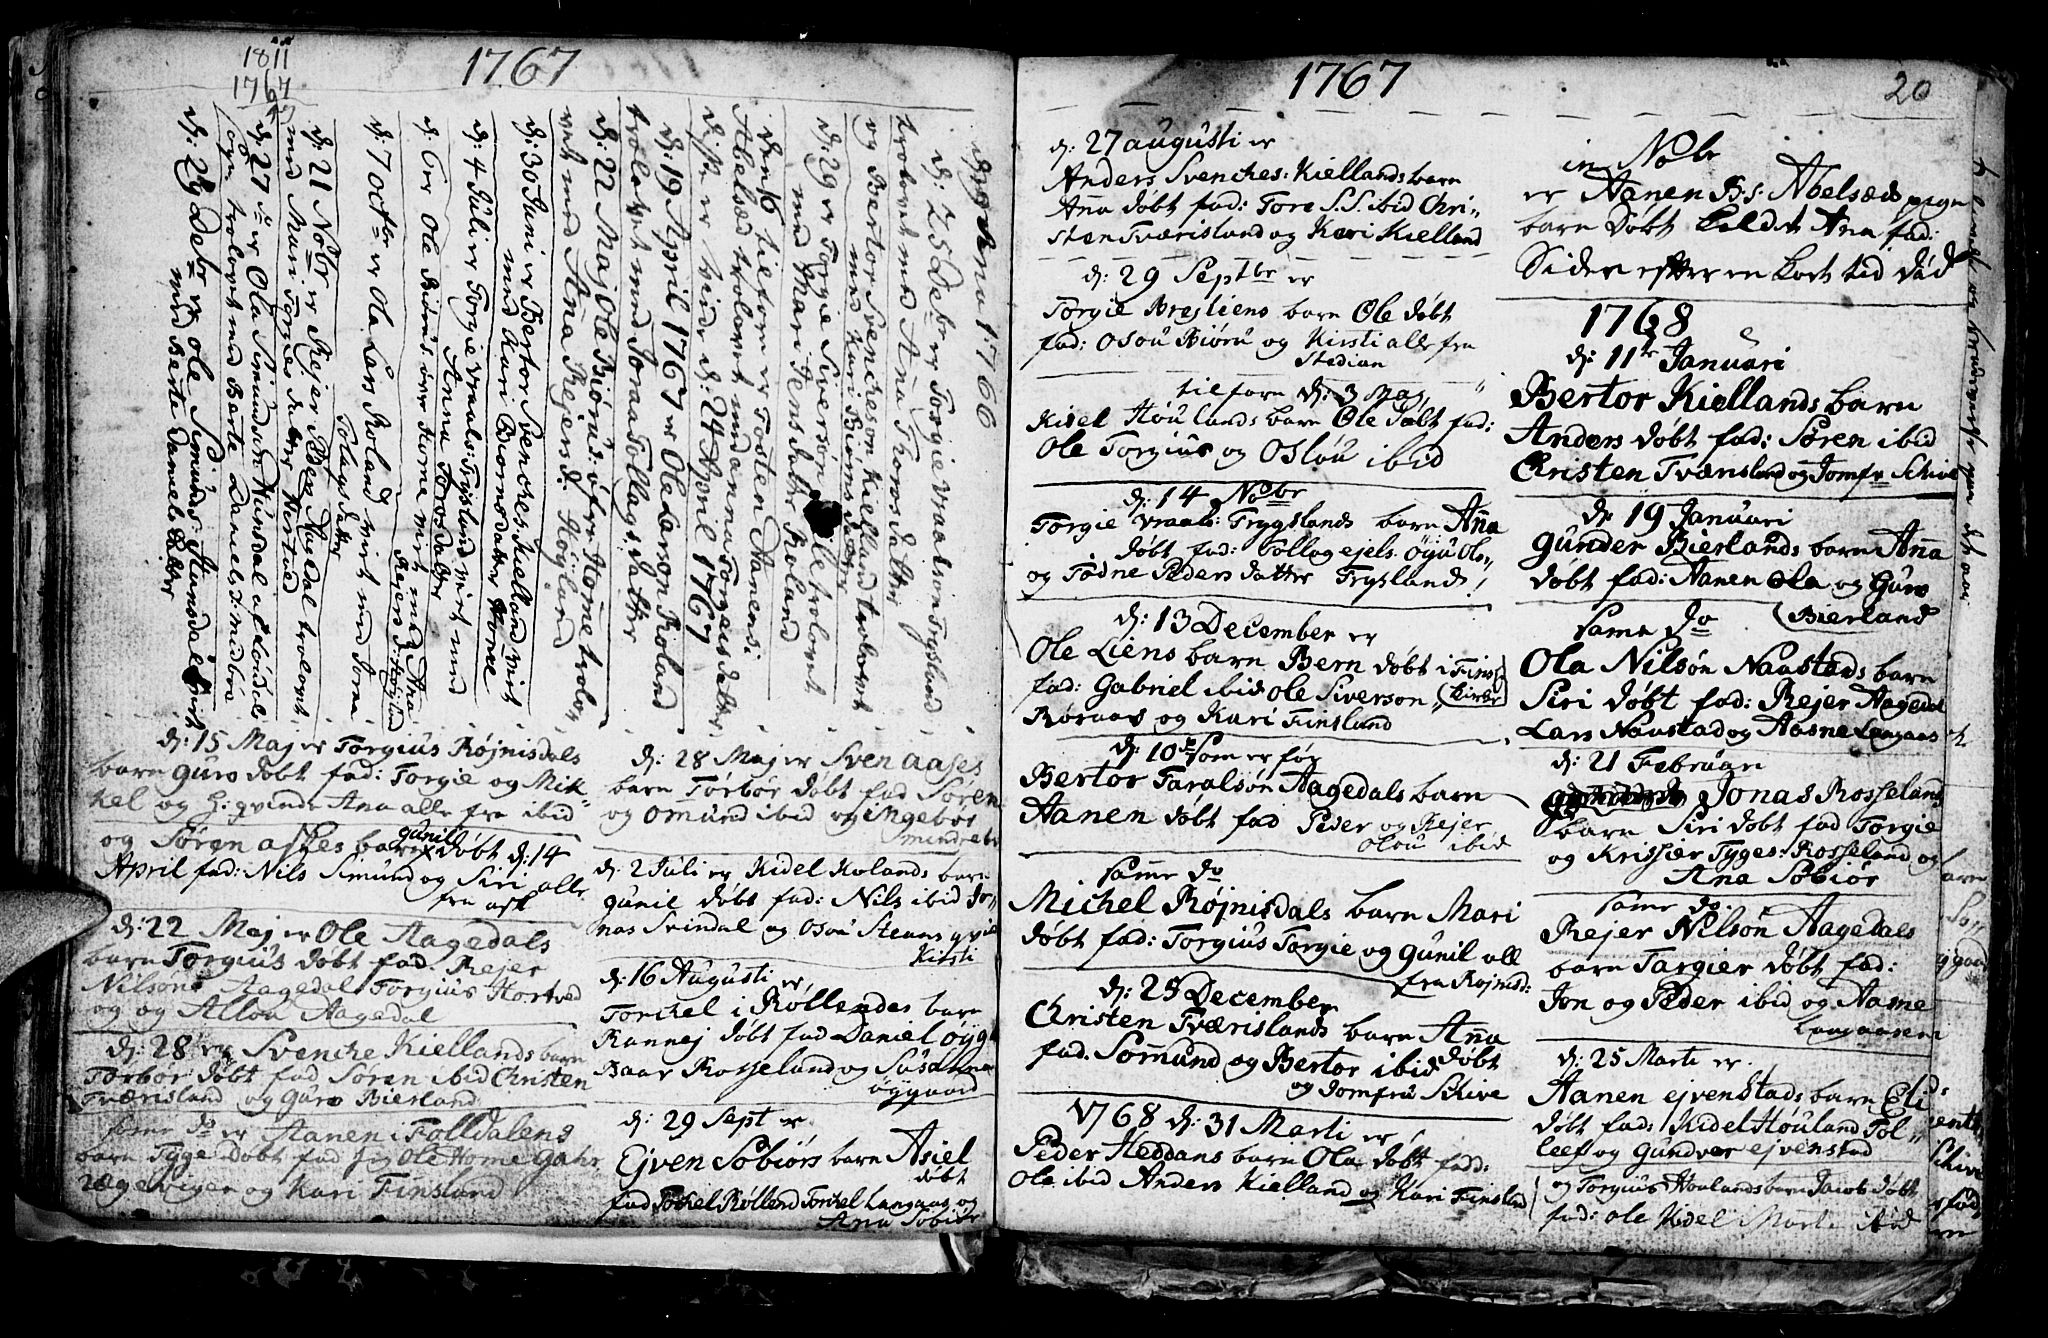 1811
1767
1767
Anno 1766
d: 25 Decbr er Torgie Vraalsøn Trysland
trolovet med Ana Thorsdatter
og Bertor Svenchesøn Kielland trolovet
med Kari Biørnsdatter
d: 29 er Torgie Siversøn trolovet
med Mari Jensdatter Roland
den 16 tilforn er Tosten Aanensi
Abelsæd trolovet med anna Torgiesdatter
diste er viede d: 24 April 1767
d: 19 April 1767 er Ole Larson Roland
trolovet med Joraa Tollagsdatter
d: 22 Maj Ole Biørns: øfre Home trolov
vet med Ana Rejersd: Høyland
d: 30 Juni er Bertor Svenches: Kielland viet
med Kari Biørnsdatter Home
d: 4 Juli er Torgie Vraals: Trysland viet med
Anna Torosdatter
d: 6er Ole Biørns øvre Home viet med Ana
Rejers d: Høyland
d: 7 octbr er Ola Lars Roland viet med Joraa
Tolagsdatter
d: 21 Nobr er Rejer Peders Aagedal trolovet
med Mari Torgiesdatter Hortved
d: 27 er Ola Simundsøn Stunsdal
trolovet med Berte Daniels d:
d: 29 Decbr er ole Simunds Stunsdal viet
med Berte Daniels datter
d: 15 Maj er Torgius Røjnisdals
barn guro døbt fad: Torgie og Mik-
kel og H: qvinde Ana alle fra ibid
og Søren askes barn gunil døbt d: 14
April fad: Nils Simund og Siri alle
fra ask
d: 22 Maj er Ole Aagedals
barn Torgius døbt fad. Rejer
Nilsøn Aagedal Torgius Hortved
og og Allou Aagedal
d: 28 er Svenche Kiellands barn
Torbør døbt fad Søren ibid Christen
Tværisland og Guro Bierland
same do er Aanen i Folldalens
barn Tyge døbt fad Jeg Ole Home Gahr
og Kari Finsland
d: 28 Maj er Sven aases
barn Torbør døbt fad Søren
og Omund ibid og Ingebor
mindrebø
d: 2 Juli er Kidel Rolands barn
gunil døbt fad: Nils ibid Jo-
nas Svindal og Osou Steans qvi
Kirsti
d: 16 Augusti er
Torchel i Røllendes barn
Rannej døbt fad Daniel øyga
Baar Rosseland og Susanna
øygaard
d: 29 Sept er
Ejven Søbiørs barn Asiel
døbt
fad Tochel Rølland Torkel Langaas og
Ana Søbiør
1767
20
d: 27 augusti er
Anders Svenches: Kiellands barn
Ana døbt fad: Tore S.S. ibid Chri-
sten Tværisland og Kari Kielland
d: 29 Septbr er
Torgie Breiliens barn Ole døbt
fad: Osou Biørn og Kirsti alle fra
Stedian
tilforn d: 3 Maj
Kidel Høulands barn Ole døbt fad:
Ole Torgius og Oslou ibid
d: 14 Nobr
Torgie Vraals: Trygslands barn Ana
døbt fad: Tollog ejels. Øyu Ols-
og Tødne Peders datter Trysland
d: 13 December er
Ole Liens barn Bern døbt i Fins
Kirke
fad: Gabriel ibid Ole Siverson
Røraas og Kari Finsland
d: 10 som er før
Bertor Taralsøn Aagedals barn
Aanen døbt fad Peder og Rejer
Olou ibid
same do
Michel Røjnisdals barn Mari
døbt fad: Torgius Torgie og Gunil all
fra Rojnisd:
d: 25 December
Christen Tværislands barn Anna
døbt
fad. Somund og Bertor ibid
og Jomfru Schive
1768 d: 31 Marti er
Peder Heddans barn Ola døbt fadd:
Ole ibid Anders Kielland og Kari Finsland
in Nobr
er Aanen B: s: Abelsæds pige
barn døbt kaldet Ana fad:
Siden efter en kort tid død
1768
d: 11te Januari
Bertor Kiellands barn
Anders døbt fad: Søren ibid
Christen Tværisland og Jomfr Schive
d: 19 Januari
Gunder Bierlands barn Anna
døbt fad: Aanen Ola og Guro
Bierland
same do
Ola Nilsøn Naastads barn
Siri døbt fad: Rejer Aagedal
Lars Naustad og Aasne Langaas
d: 21 Februari
Jonas Rosseland
barn Siri døbt fad Torgie
og Krissier Tyges: Rosseland og
Ana Søbiør
same do:
Rejer Nilsøn Aagedals
barn Targier døbt fad:
Jon og Peder ibid og Aasne
Langaasen
d: 25 Marti er
Aanen ejvenstads barn Eli
døbt fad: Kidel Høuland Tol-
leef og Gundvor ejvenstad
og Torgius Houlands barn Jacob døbt
fad: ole Kidel Marte ibid